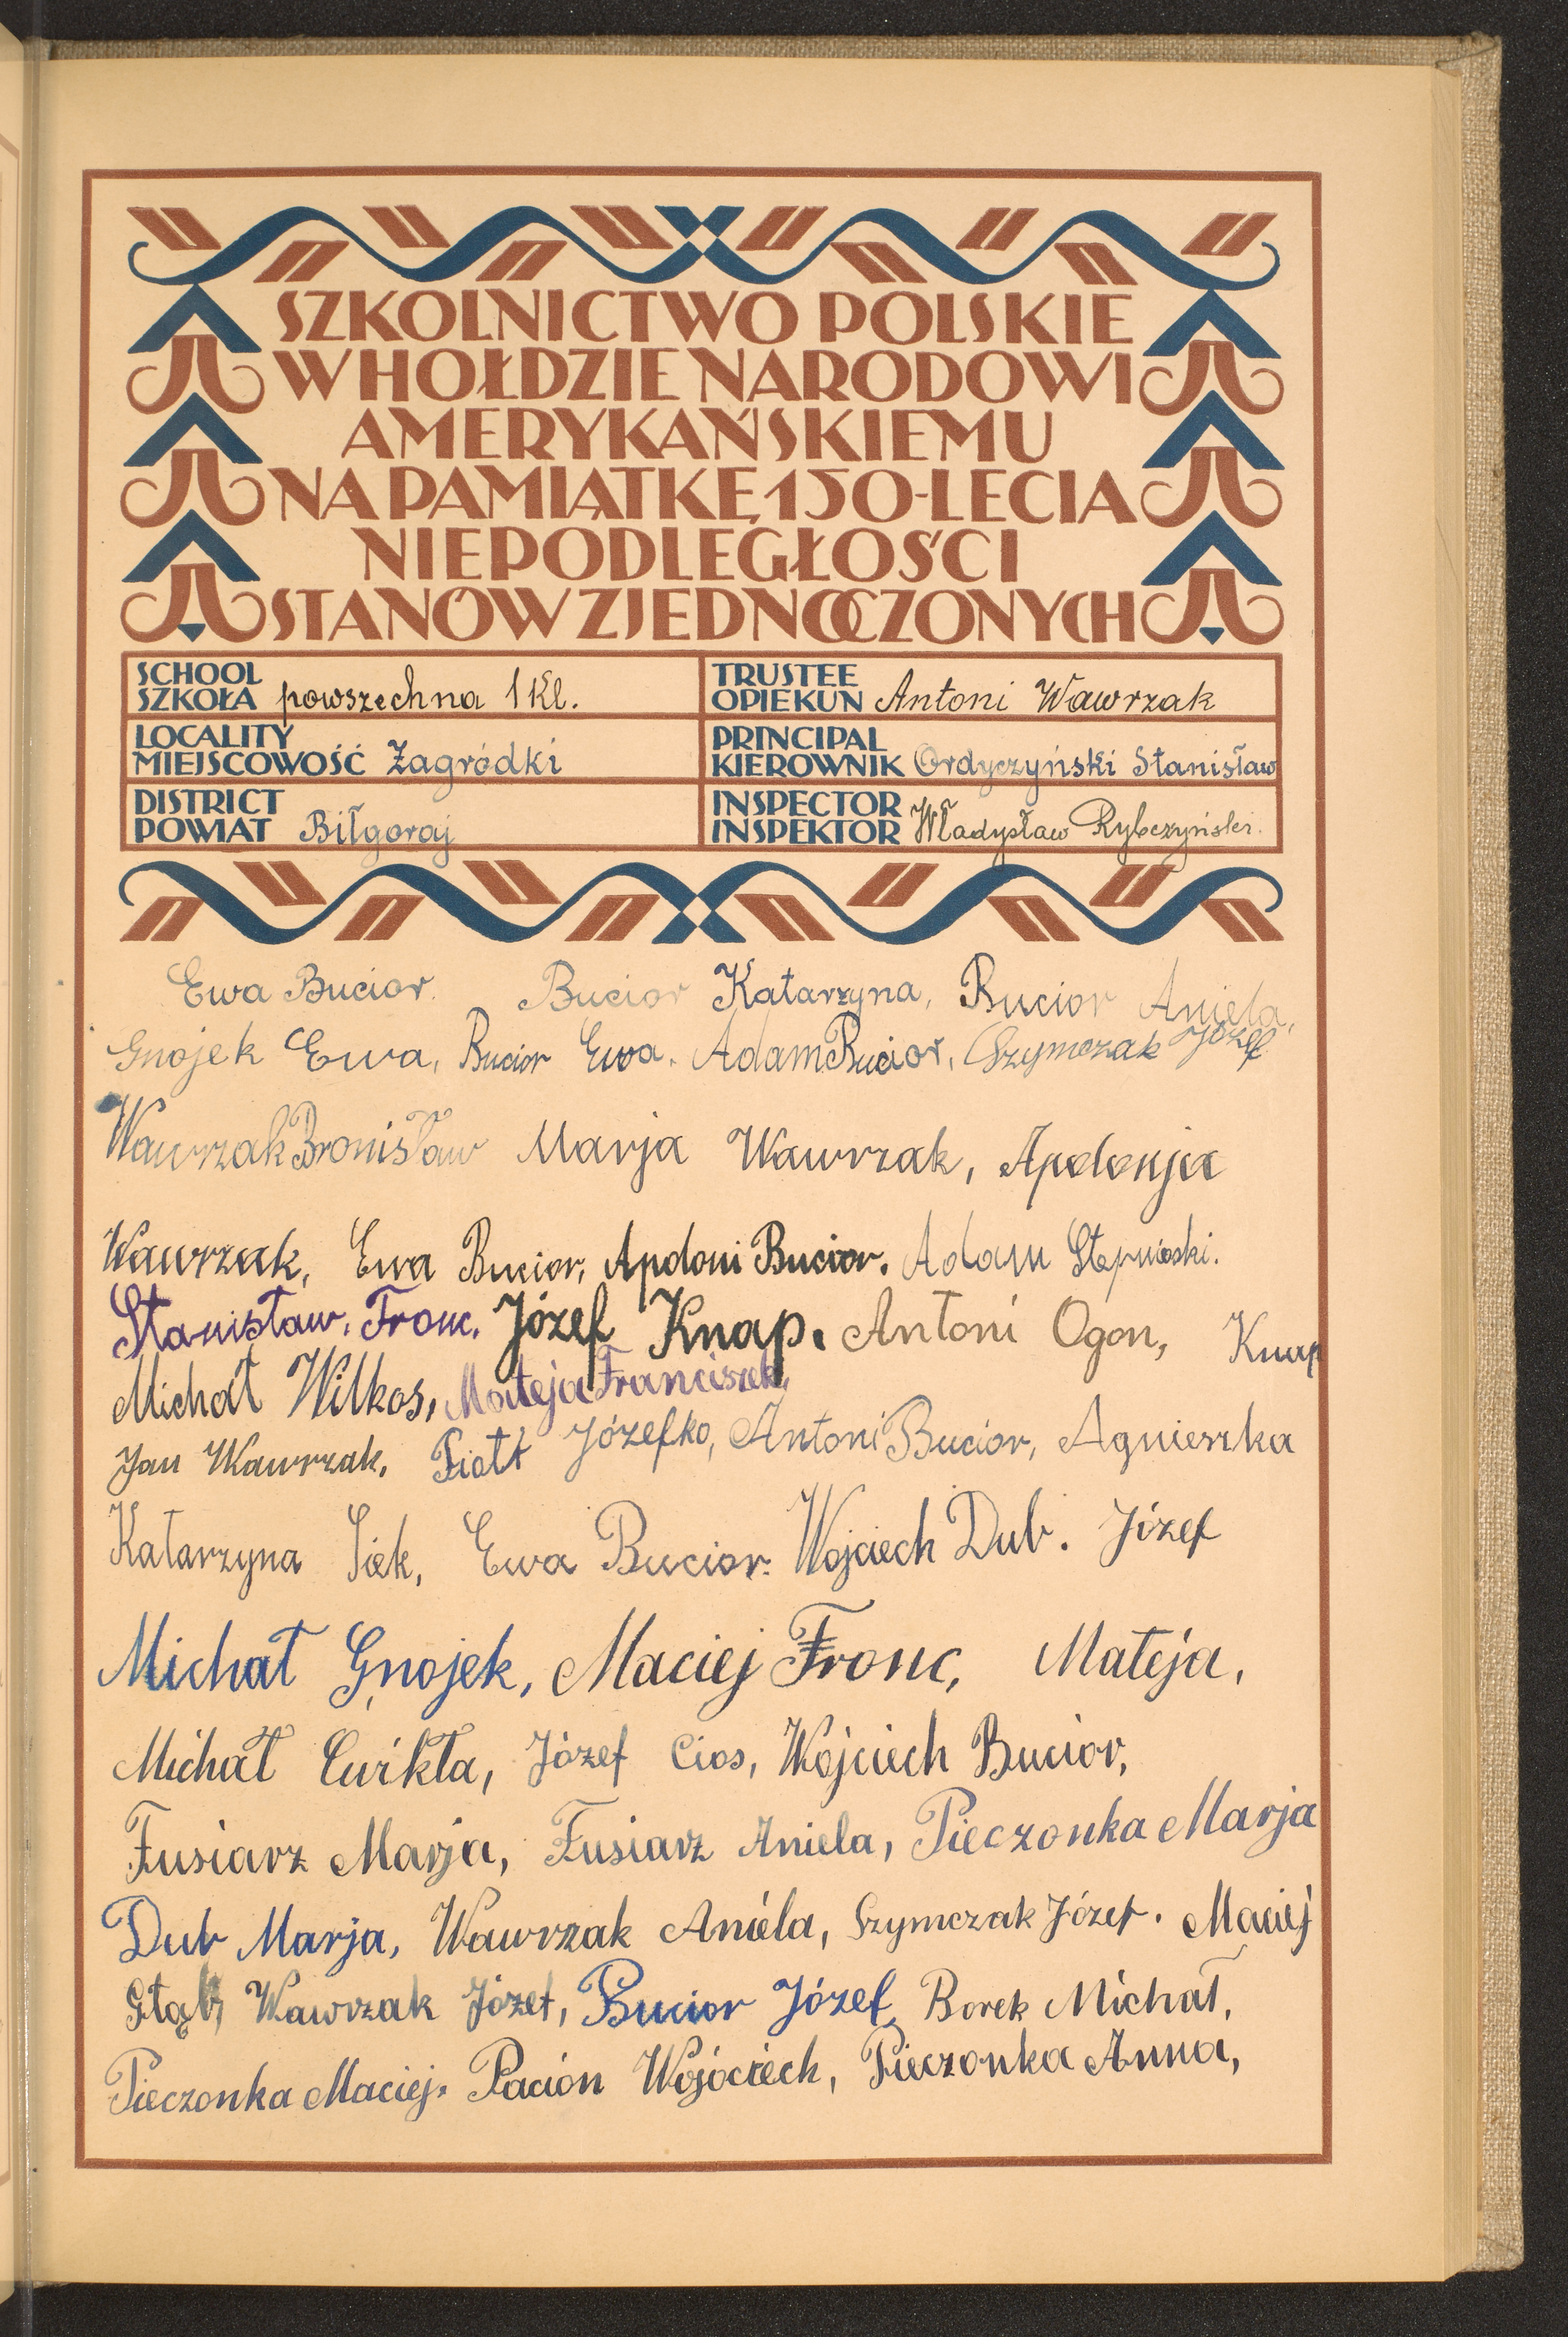 SZKOLNICTWO POLSKIE
W HOŁDZIE NARODOWI
AMERYKAŃSKIEMU
NA PAMIĄTKĘ 150-LECIA
NIEPODLEGŁOŚCI
STANÓW ZJEDNOCZONYCH
SCHOOL
SZKOŁA powszechna 1 Kl.
TRUSTEE
OPIEKUN Antoni Wawrzak
LOCALITY
MIEJSCOWOŚĆ Zagródki
PRINCIPAL
KIEROWNIK Ordyczyński Stanisław
DISTRICT
POWIAT Biłgoraj
INSPECTOR
INSPEKTOR Władysław Rybczyński.
Ewa Bucior. Bucior Katarzyna, Bucior Aniela,
Gnojek Ewa, Bucior Ewa. Adam Bucior, Szymczak Józef
Wawrzak Bronisław Marja Wawrzak, Apolonja
Wawrzak, Ewa Bucior, Apdoni Bucior. Adam
Stanisław. Fronc. Józef Knap. Antoni Ogon, Knap
Michał Wilkos, Mateja Franciszek,
Jan Wawrzak. Piotr Józefko, Antoni Bucior, Agnieszka
Katarzyna Siek, Ewa Bucior. Wojciech Dub. Józef
Michał Gnojek, Maciej Fronc, Mateja,
Michał Ćwikła, Józef Cios, Wojciech Bucior,
Fusiarz Marja, Fusiarz Aniela, Pieczonka Marja
Dub Marja, Wawrzak Aniela, Szymczak Józef. Maciej
Głąb, Wawrzak Józef, Bucior Józef, Borek Michał,
Pieczonka Maciej. Pacion Wojóciech, Pieczonka Anna,